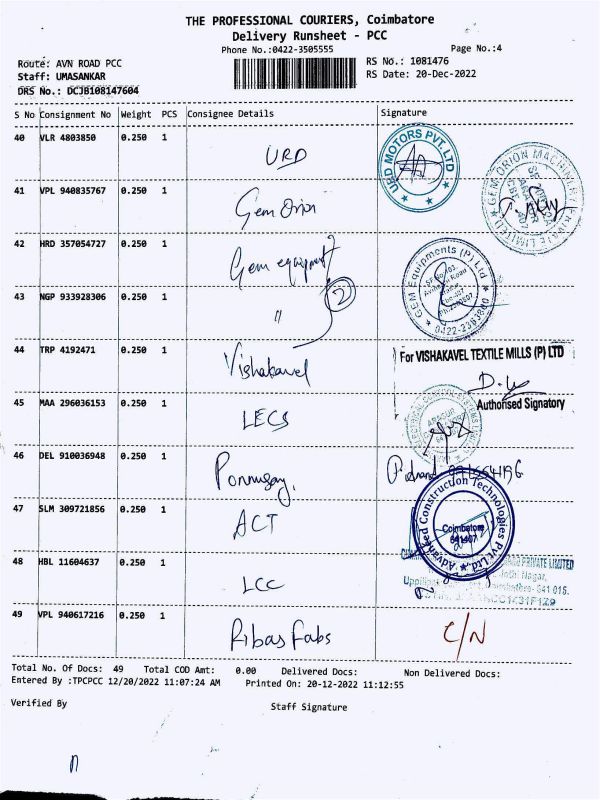 THE PROFESSIONAL COURIERS, Coimbatore
Delivery Runsheet - PCC
Phone No.:0422-3505555
Page No.:4
Route: AVN ROAD PCC
RS No.: 1081476
Staff: UMASANKAR
RS Date: 20-Dec-2022
DRS No.: DCJB108147604
S No Consignment No Weight PCS Consignee Details Signature
40 VLR 4803850 0.250 1 URD
URD MOTORS PVT.LTD
41 VPL 940835767 0.250 1 Gem Orion
GEM ORION MACHINERY PRIVATE LIMITED
42 HRD 357054727 0.250 1 Gem equipment
GEM Equipments (P) Ltd
0422-2363800
43 NGP 933928306 0.250 1 "
2
44 TRP 4192471 0.250 1 Vishakavel
For VISHAKAVEL TEXTILE MILLS (P) LTD
Authorised Signatory
45 MAA 296036153 0.250 1 LECS
46 DEL 910036948 0.250 1 Ponnusamy
47 SLM 309721856 0.250 1 ACT
Advanced Construction Technologies Pvt.Ltd
Coimbatore
641407
48 HBL 11604637 0.250 1 LCC
PRIVATE LIMITED
Nagar,
641 015.
49 VPL 940617216 0.250 1 Ribas Fabs C/N
Total No. Of Docs: 49 Total COD Amt: 0.00 Delivered Docs: Non Delivered Docs:
Entered By :TPCPCC 12/20/2022 11:07:24 AM Printed On: 20-12-2022 11:12:55
Verified By Staff Signature